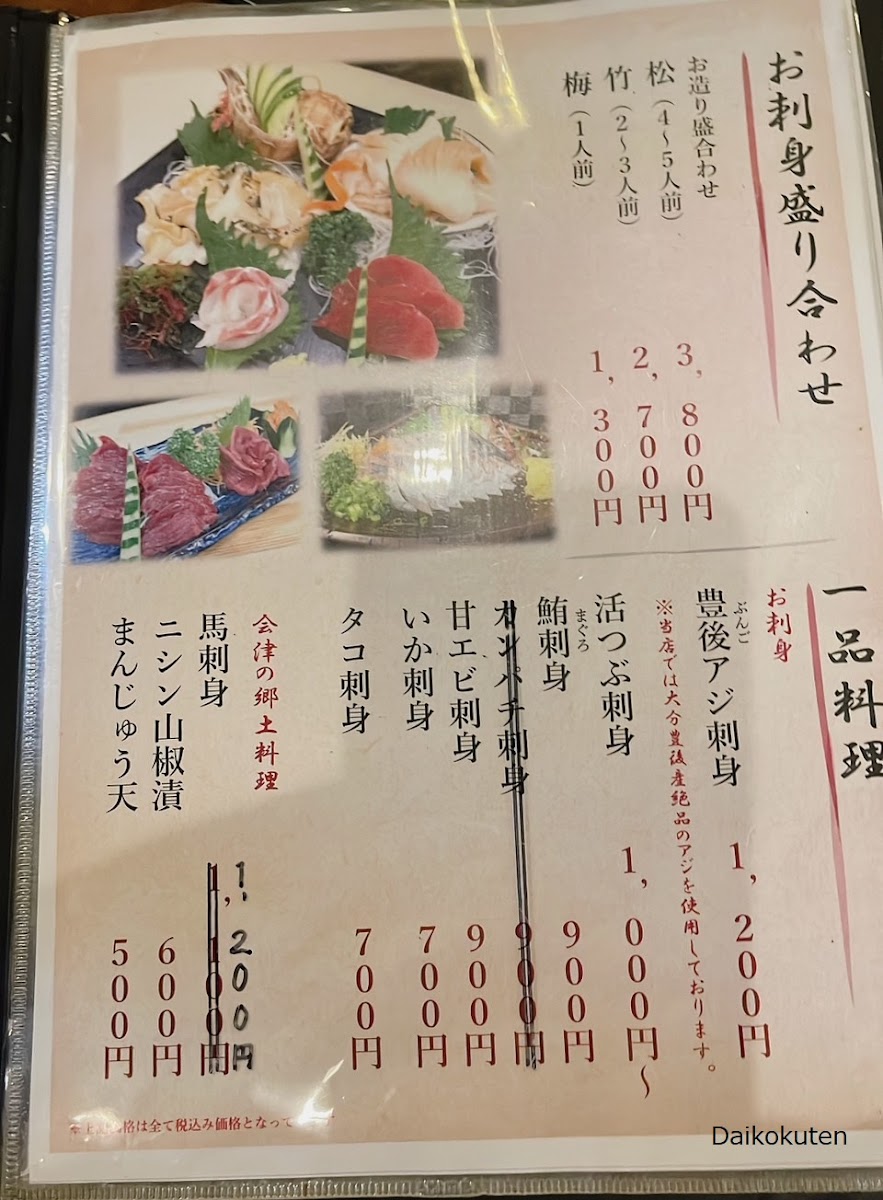 お刺身盛り合わせ
お造り盛合わせ
松(4〜5人前) 3,800円
竹(2〜3人前) 2,700円
梅(1人前) 1,300円
一品料理
お刺身
ぶんご
豊後アジ刺身 1,200円
※当店では大分豊後産絶品のアジを使用しております。
活つぶ刺身 1,000円〜
まぐろ
鮪刺身 900円
カンパチ刺身 900円
甘エビ刺身 900円
いか刺身 700円
タコ刺身 700円
会津の郷土料理
馬刺身 1,100円 1,200円
ニシン山椒漬 600円
まんじゅう天 500円
価格は全て税込み価格となって
Daikokuten